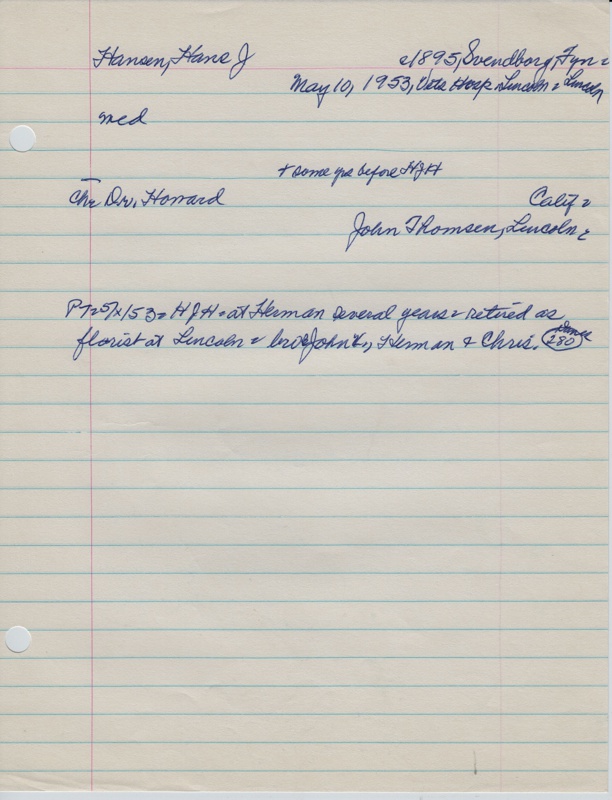 Hansen, Hans J c1895, Svendborg, Fyn =
May 10, 1953, Vets Hosp Lincoln = Lincoln
med
+ some yrs before HJH
Ch = Dr. Howard Calif =
John Thomsen, Lincoln =
P7=5/x/53 = HJH = at Herman several years = retired as
florist at Lincoln = bros John K, Herman & Chris. 280 Dance